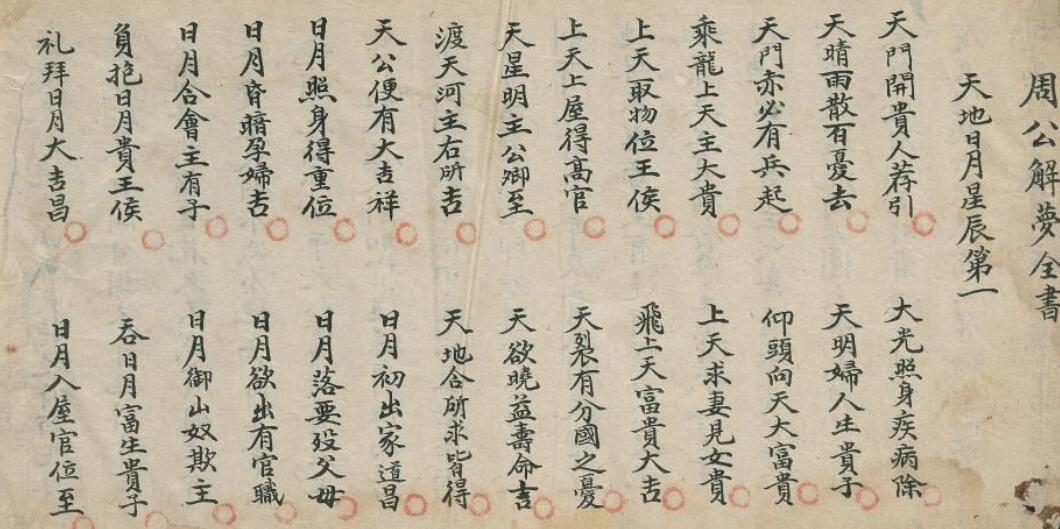 周公解夢全書
天地日月星辰第一
天門開貴人荐引　大光照身疾病除
天晴雨散百憂去　天明婦人生貴子
天門赤必有兵起　仰頭向天大富貴
乘龍上天主大貴　上天求妻見女貴
上天取物位王侯　飛上天富貴大吉
上天上屋得高官　天裂有分國之憂
天星明主公卿至　天欲曉益壽命吉
渡天河主右所吉　天地合所求皆得
天公便有大吉祥　日月初出家道昌
日月照身得重位　日月落要歿父母
日月昏暗孕婦吉　日月欲出有官職
日月合會主有子　日月御山奴欺主
負抱日月貴王侯　吞日月富生貴子
礼拜日月大吉昌　日月入屋官位至